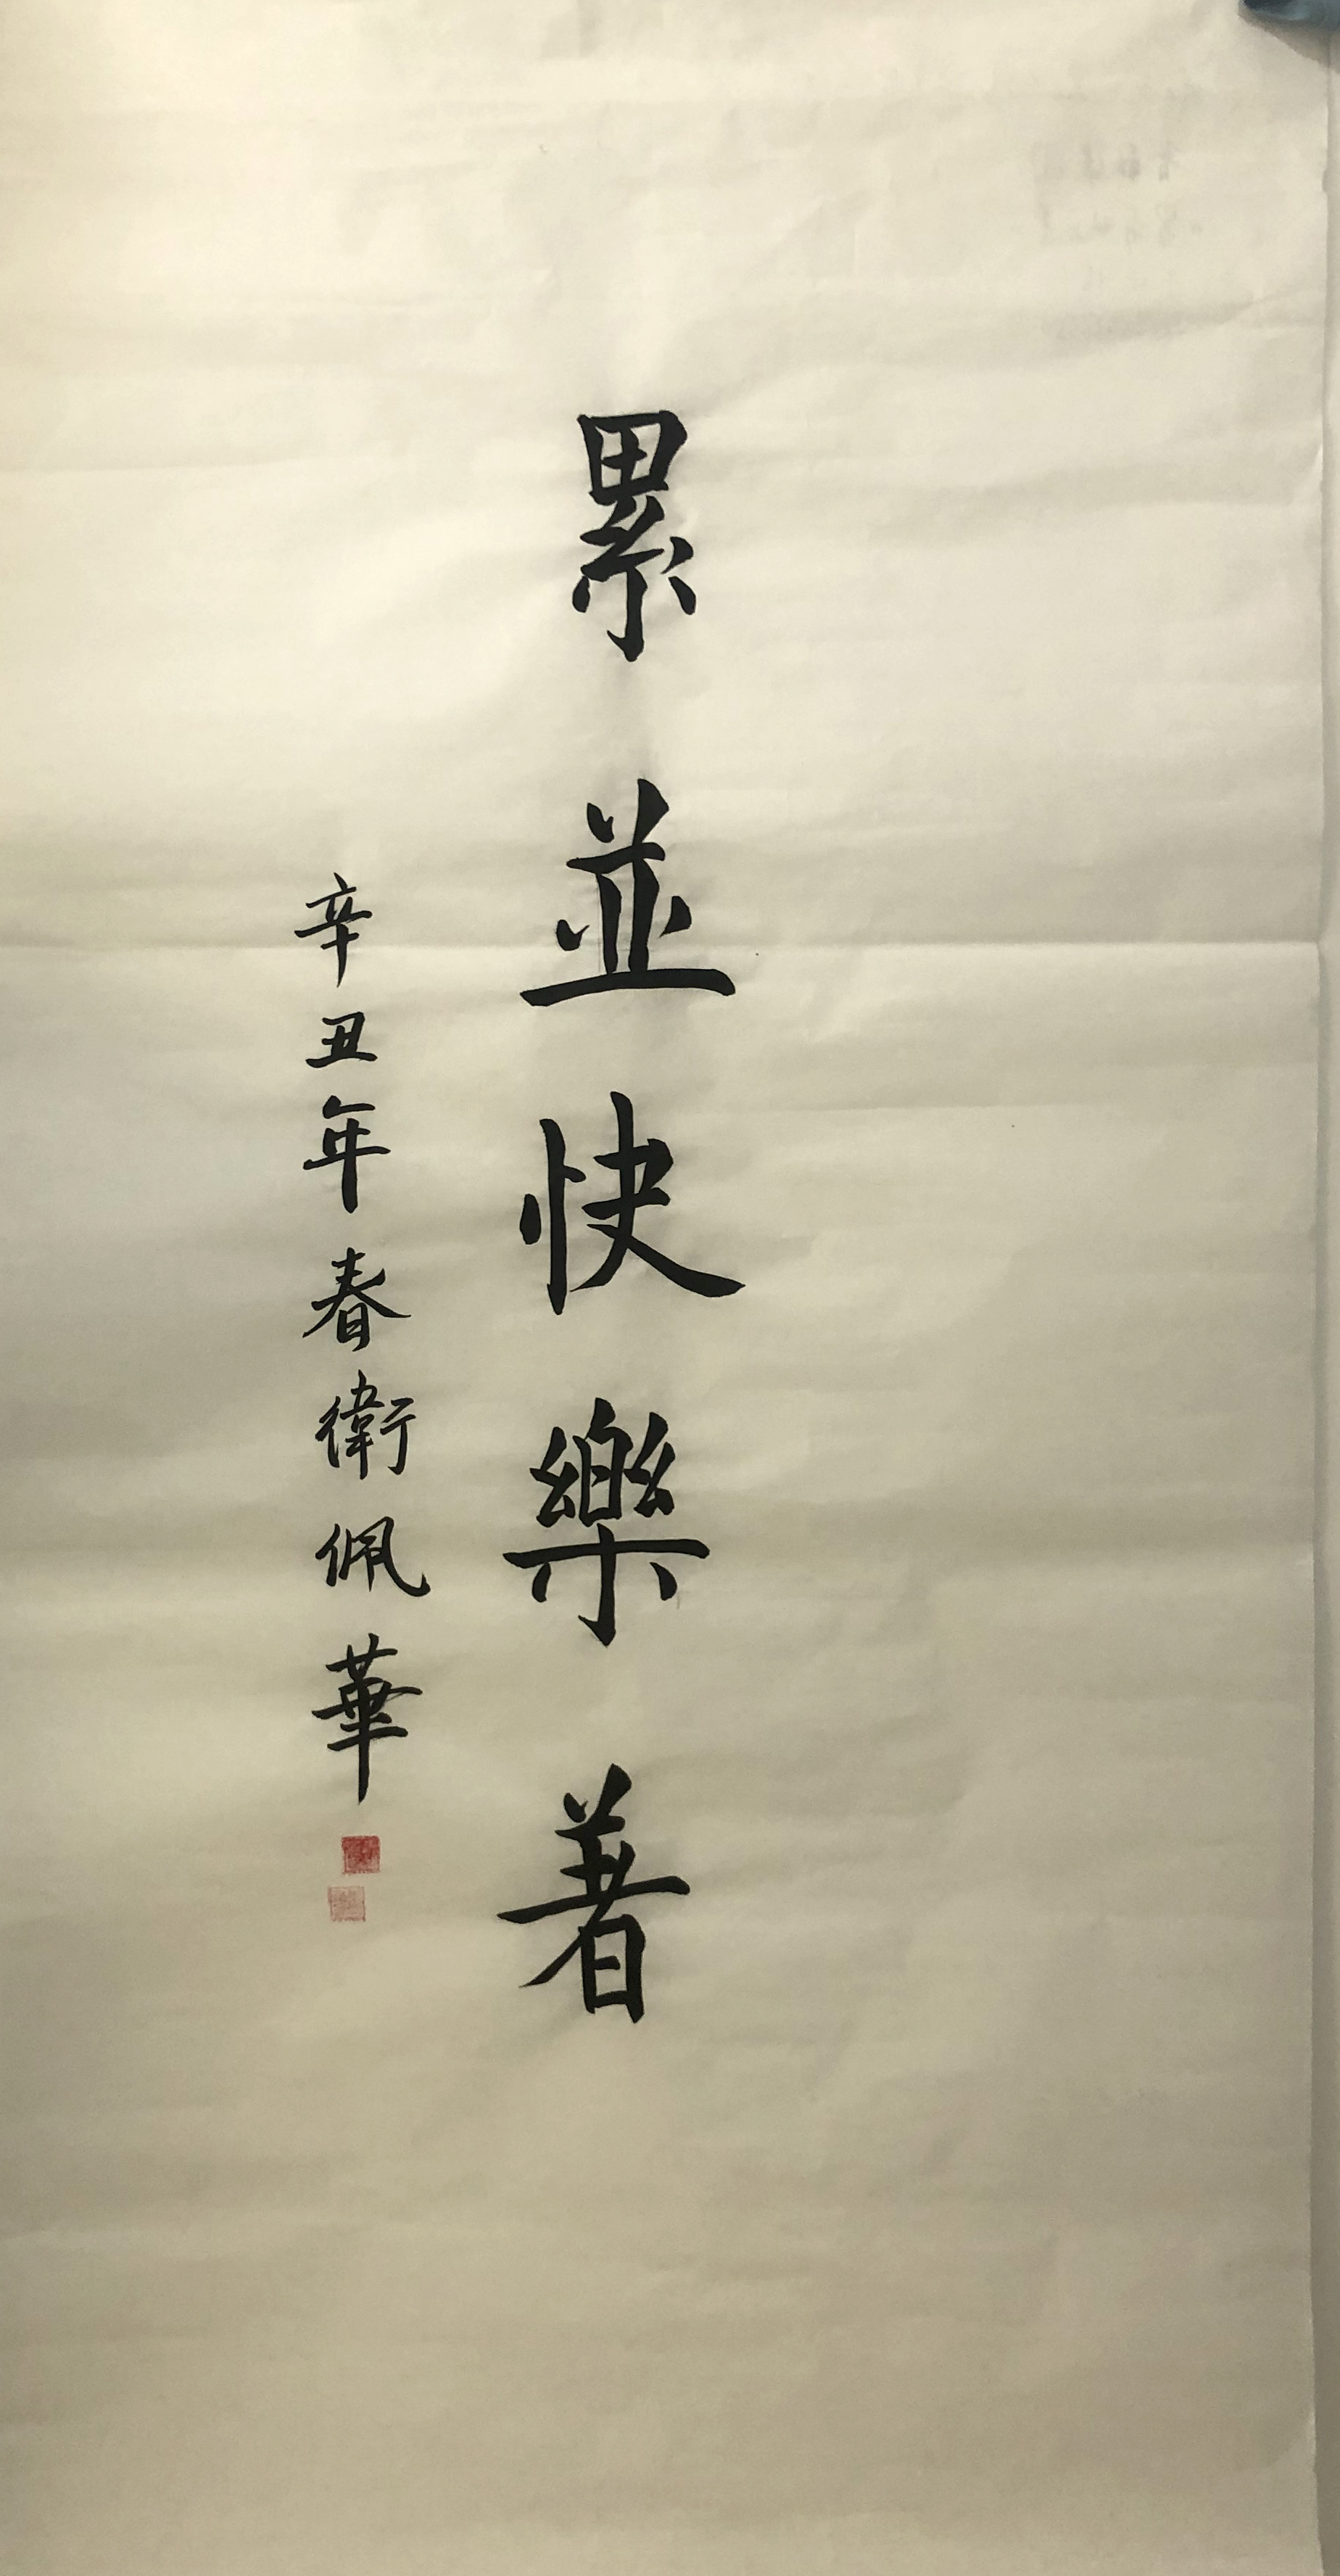 累並快樂著
辛丑年春衛佩華